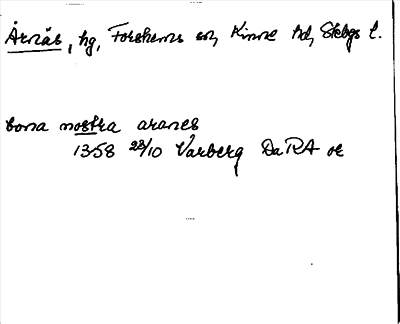 Årnäs, hg, Forshems sn, Kinne hd, Skbgs l.
bona nostra aranes
1358 28/10 Varberg DaRA or